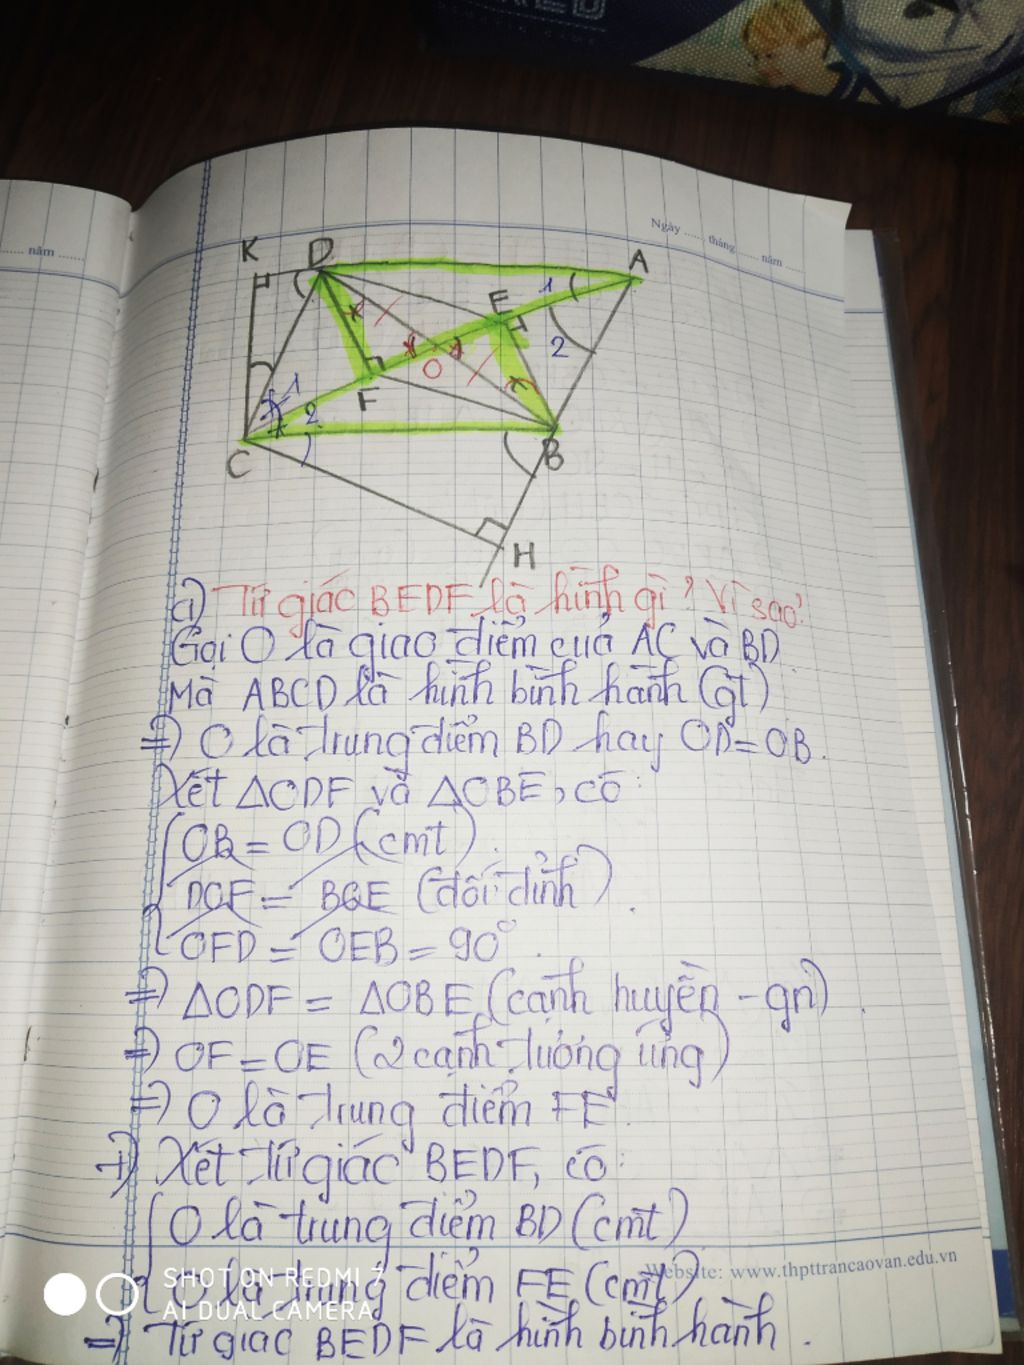 Ngày ...... tháng ...... năm ......
...... năm ......
K D A
E
1
2
O
F
1
2
C B
H
a) Tứ giác BEDF là hình gì? Vì sao?
Gọi O là giao điểm của AC và BD
Mà ABCD là hình bình hành (gt)
=> O là trung điểm BD hay OD = OB.
Xét △ODF và △OBE, có:
OB = OD (cmt).
DOF = BOE (đối đỉnh).
OFD = OEB = 90°.
=> △ODF = △OBE (cạnh huyền - gn).
=> OF = OE (2 cạnh tương ứng)
=> O là trung điểm FE.
+) Xét tứ giác BEDF, có:
O là trung điểm BD (cmt)
O là trung điểm FE (cmt)
=> Tứ giác BEDF là hình bình hành.
Website: www.thpttrancaovan.edu.vn
SHOT ON REDMI 7
AI DUAL CAMERA